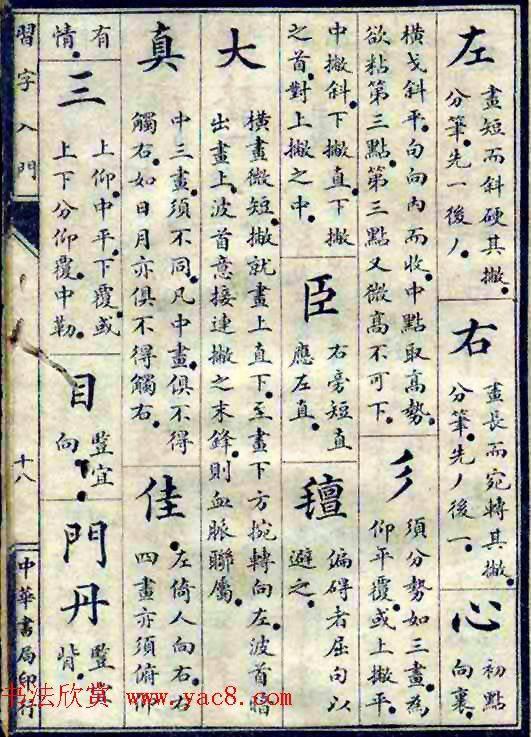 左
畫短而斜硬其撇
分筆先一後丿
右
畫長而宛轉其撇
分筆先丿後一
心
初點
向裏
橫戈斜平勾向內而收中點取高勢
欲粘第三點第三點又微高不可下
彡
須分勢如三畫為
仰平覆或上撇平
中撇斜下撇直下撇
之首對上撇之中
臣
右旁短直
應左直
䆄
偏碍者屈勾以
避之
大
橫畫微短撇就畫上直下至畫下方挽轉向左波首暗
出畫上波首意接連撇之末鋒則血脈聯屬
真
中三畫須不同凡中畫俱不得
觸右如日月亦俱不得觸右
佳
左倚人向右右
四畫亦須俯仰
有
情
三
上仰中平下覆或
上下分仰覆中勒
目
豎宜
向
門丹
豎宜
背
習字入門
十八
中華書局印行
书法欣赏 www.yac8.com